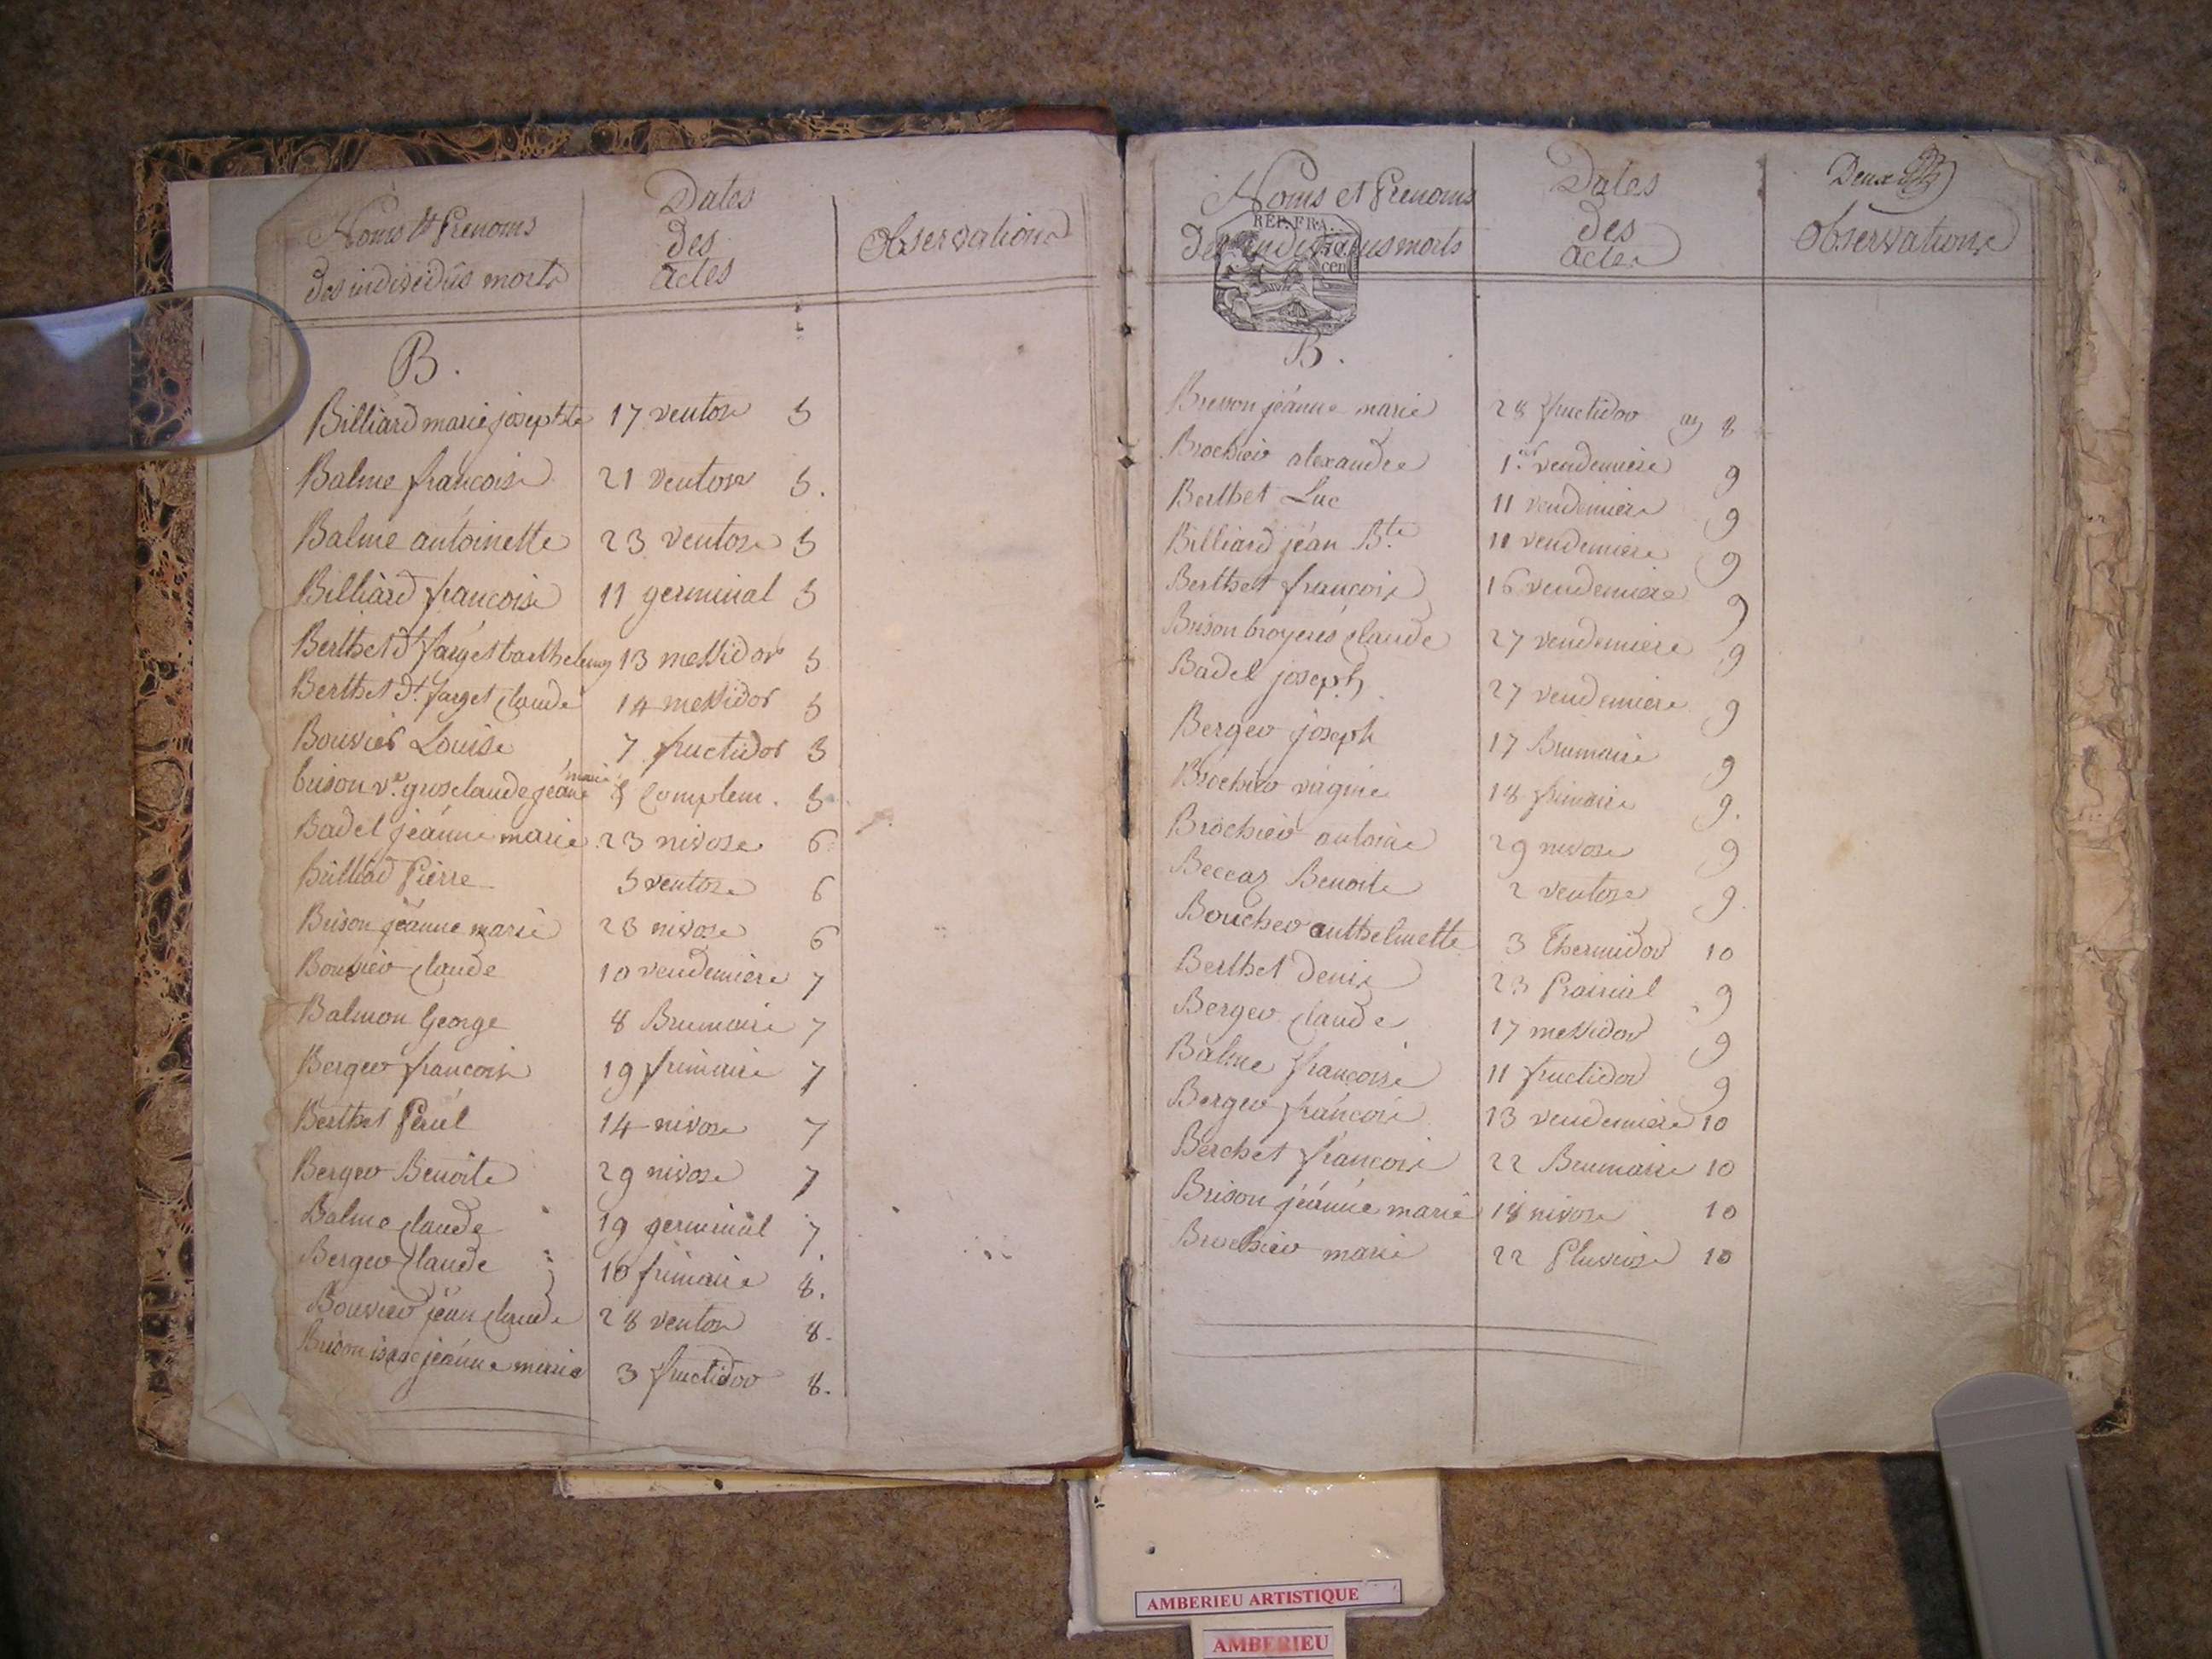 Noms et Prenoms
des individus morts
Dates
des
actes
observations
B.
Billiard marie josephte 17 ventose 5
Balme francoise 21 ventose 5.
Balme antoinette 23 ventose 5
Billiard francoise 11 germinal 5
Berthet dt farget barthelemy 13 messidor 5
Berthet dt. farget claude 14 messidor 5
Bouvier Louise 7 fructidor 5
brison ve. gusclaude jeane marie 5 Complem. 5
Badel jeanne marie 23 nivose 6
Billiad Pierre 5 ventose 6
Brison jeanne marie 23 nivose 6
Bouvier claude 10 vendemiere 7
Balmon George 8 Brumaire 7
Berger francois 19 frimaire 7
Berthet Paul 14 nivose 7
Berger Benoite 29 nivose 7
Balme claude 19 germinal 7.
Berger Claude 16 frimaire 8.
Bouvier jean claude 28 ventose 8.
Brison jeanne marie 3 fructidor 8.
Noms et Prenoms
des individus morts
REP. FRA.
cen
Dates
des
actes
Deux
observations
B.
Bresson jeanne marie 28 fructidor an 8
Brochier alexandre 1er vendemiere 9
Berthet Luc 11 vendemiere 9
Billiard jean Bte 11 vendemiere 9
Berthet francois 16 vendemiere 9
Brison broyeres claude 27 vendemiere 9
Badel joseph 27 vendemiere 9
Berger joseph 17 Brumaire 9
Brochier virginie 18 frimaire 9.
Brochier antoine 29 nivose 9
Beccaz Benoite 2 ventose 9.
Boucher anthelmette 3 Thermidor 10
Berthet denis 23 Prairial 9
Berger claude 17 messidor 9
Balme francoise 11 fructidor 9
Berger francois 13 vendemiere 10
Berchet francois 22 Brumaire 10
Brison jeanne marie 18 nivose 10
Brochier marie 22 Pluviose 10
AMBERIEU ARTISTIQUE
AMBERIEU